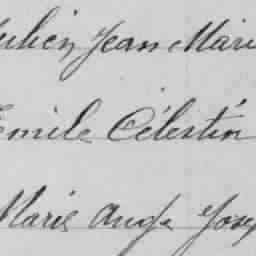 Julien Jean Marie
Emile Célestin
Marie Ange Josep